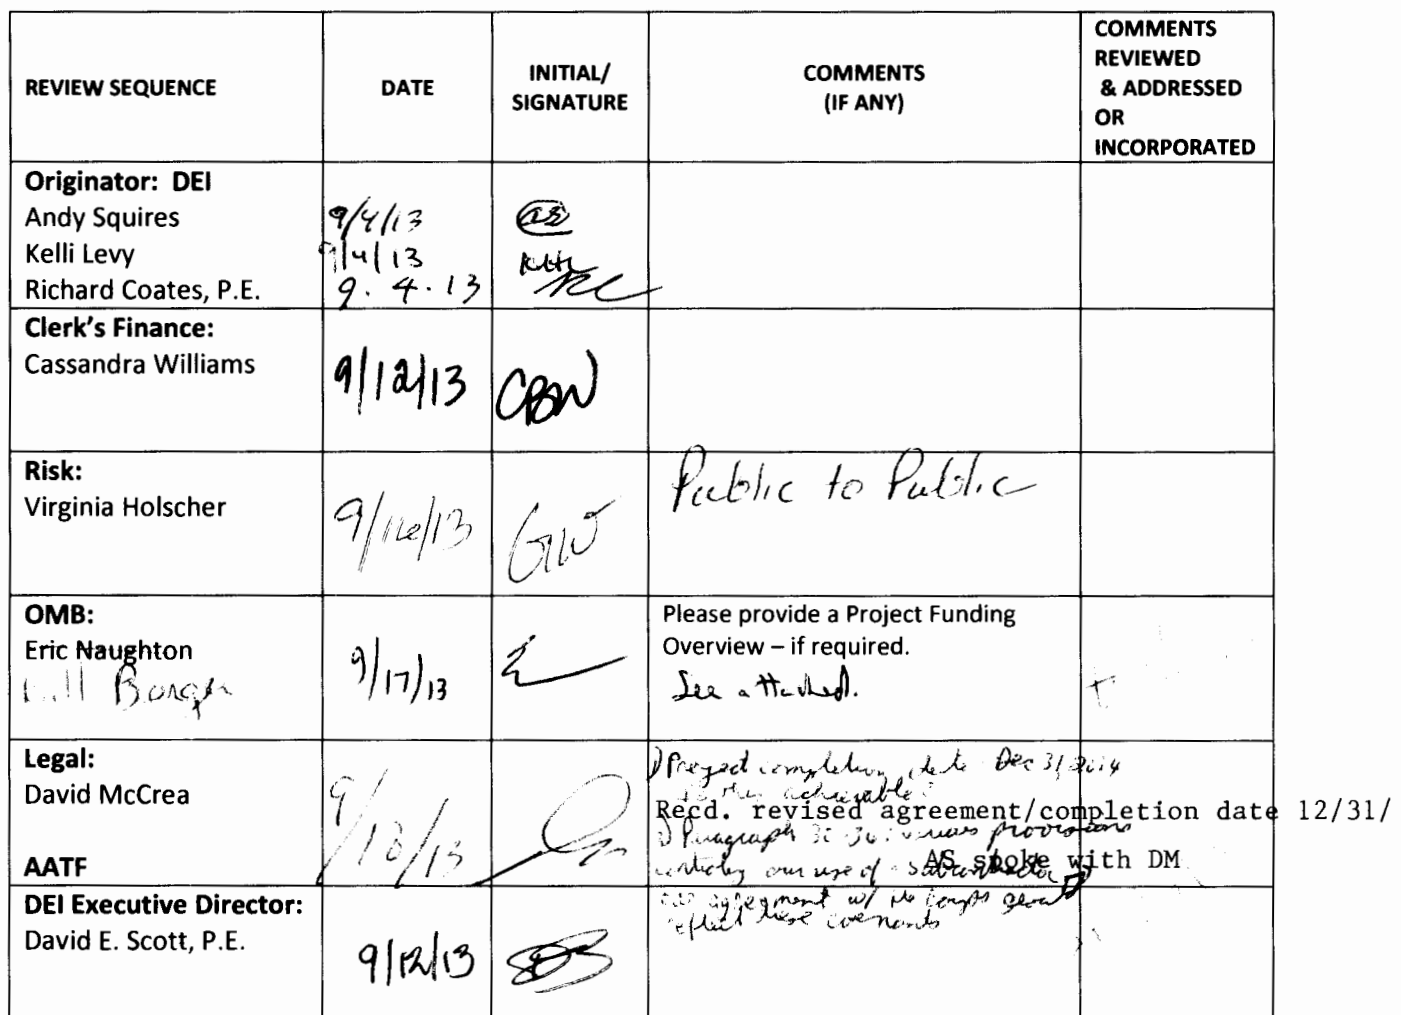 REVIEW SEQUENCE
DATE
INITIAL/
SIGNATURE
COMMENTS
(IF ANY)
COMMENTS
REVIEWED
& ADDRESSED
OR
INCORPORATED
Originator: DEI
Andy Squires 9/4/13 AS
Kelli Levy 9/4/13 KHL
Richard Coates, P.E. 9.4.13 RC
Clerk's Finance:
Cassandra Williams 9/12/13 CBW
Risk:
Virginia Holscher 9/16/13
Public to Public
OMB:
Eric Naughton
9/17/13
Please provide a Project Funding
Overview – if required.
See attached.
Legal:
David McCrea
AATF
1) Project completion date Dec 31, 2014
is this achievable?
Recd. revised agreement/completion date 12/31/
2) Paragraph provisions
our use of a subcontractor
AS spoke with DM
agreement w/ the Corps
reflect these covenants
DEI Executive Director:
David E. Scott, P.E. 9/12/13